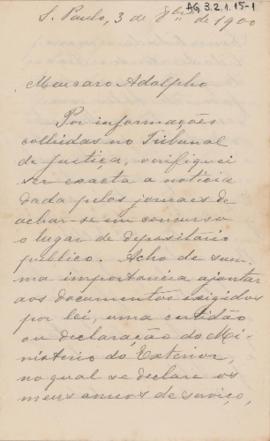 AG.3.2.1.15-1
S. Paulo, 3 de 8bro de 1900
Meu caro Adolpho
Por informações
colhidas no Tribunal
de justiça, verifiquei
ser exacta a noticia
dada pelos jornaes de
achar-se em concurso
o lugar de depositario
publico. Acho de sum-
ma importancia ajuntar
aos documentos exigidos
por lei, uma certidão
ou declaração do Mi-
nisterio do Exterior,
no qual se declare os
meus annos de serviço,